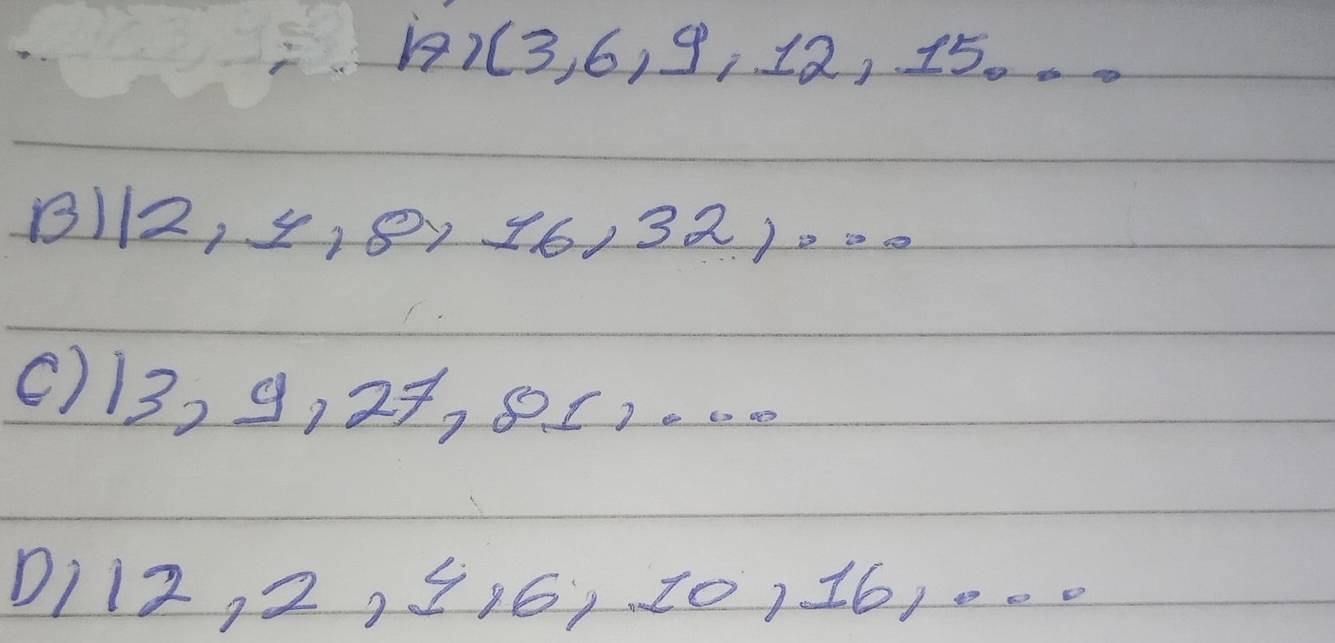 A) (3, 6, 9, 12, 15...
B) (2, 4, 8, 16, 32, ...
C) (3, 9, 27, 81, ...
D) (2, 2, 4, 6, 10, 16, ...